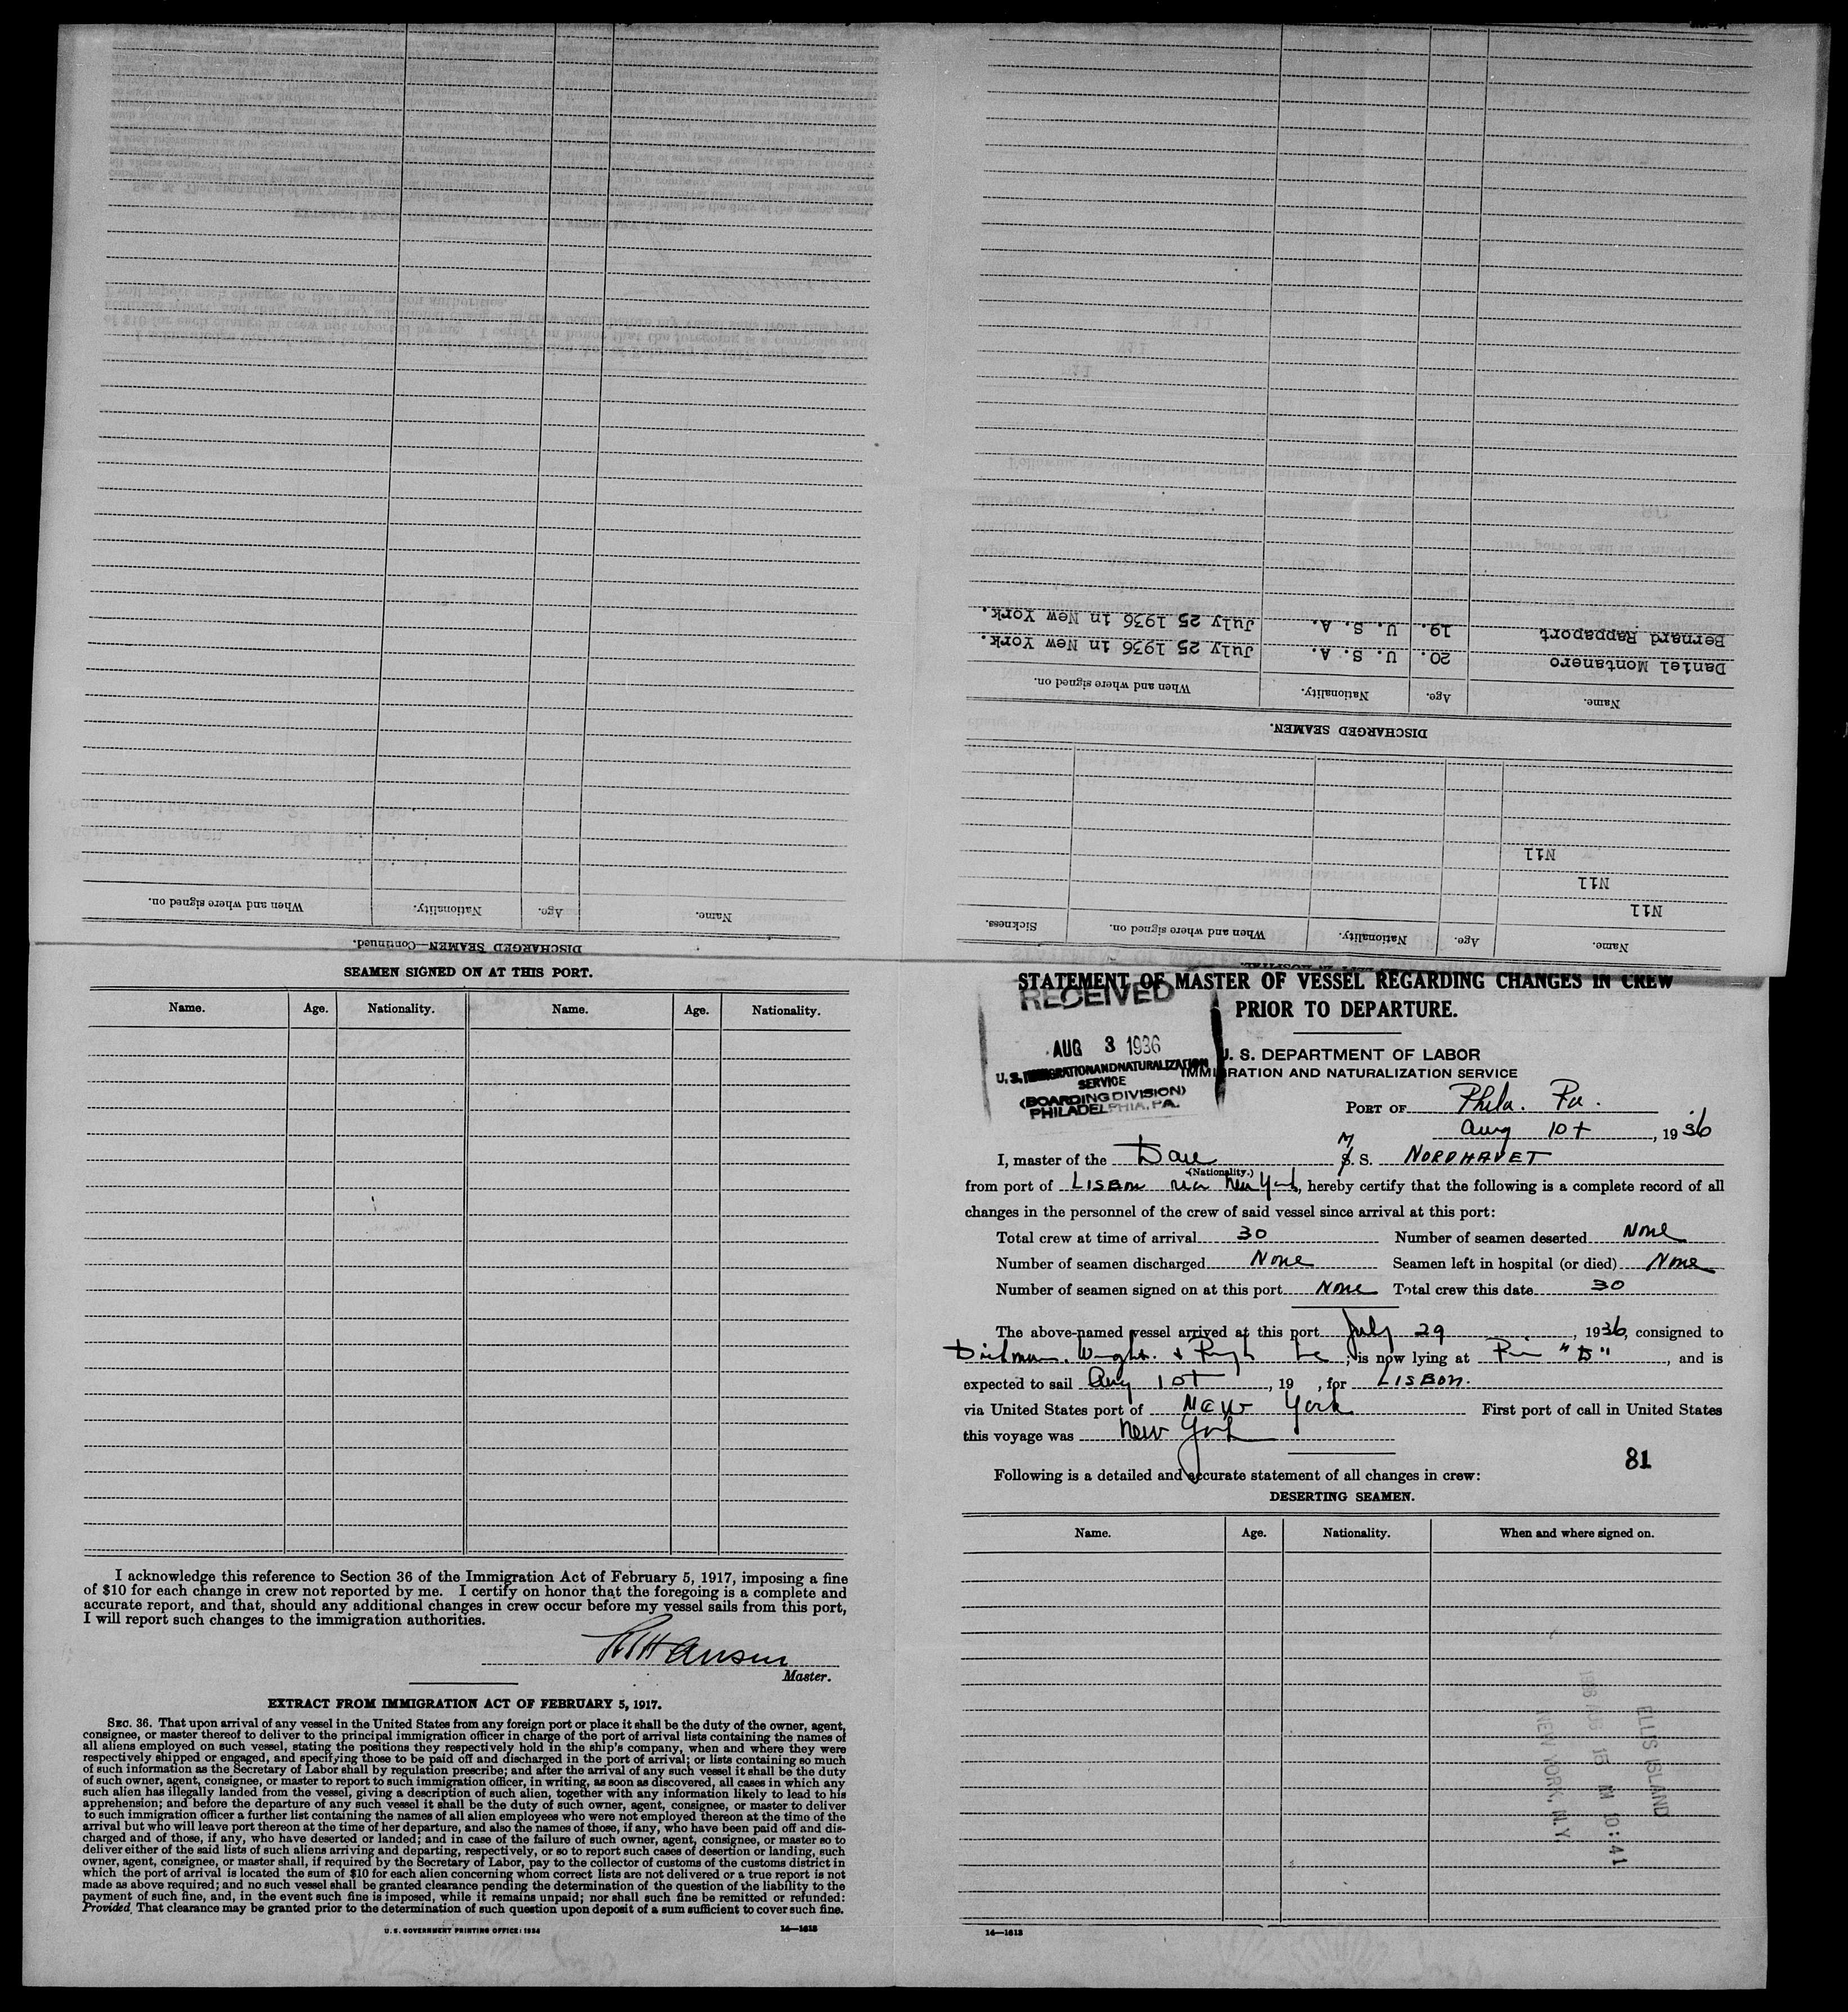 DISCHARGED SEAMEN—Continued.
Name. Age. Nationality. When and where signed on.
Name. Age. Nationality. When and where signed on. Sickness.
Nil
Nil
Nil
DISCHARGED SEAMEN.
Name. Age. Nationality. When and where signed on.
Daniel Montanero 20. U. S. A. July 25 1936 in New York.
Bernard Rappaport 19. U. S. A. July 25 1936 in New York.
SEAMEN SIGNED ON AT THIS PORT.
Name. Age. Nationality. Name. Age. Nationality.
I acknowledge this reference to Section 36 of the Immigration Act of February 5, 1917, imposing a fine
of $10 for each change in crew not reported by me. I certify on honor that the foregoing is a complete and
accurate report, and that, should any additional changes in crew occur before my vessel sails from this port,
I will report such changes to the immigration authorities.
Hansen
Master.
EXTRACT FROM IMMIGRATION ACT OF FEBRUARY 5, 1917.
SEC. 36. That upon arrival of any vessel in the United States from any foreign port or place it shall be the duty of the owner, agent,
consignee, or master thereof to deliver to the principal immigration officer in charge of the port of arrival lists containing the names of
all aliens employed on such vessel, stating the positions they respectively hold in the ship's company, when and where they were
respectively shipped or engaged, and specifying those to be paid off and discharged in the port of arrival; or lists containing so much
of such information as the Secretary of Labor shall by regulation prescribe; and after the arrival of any such vessel it shall be the duty
of such owner, agent, consignee, or master to report to such immigration officer, in writing, as soon as discovered, all cases in which any
such alien has illegally landed from the vessel, giving a description of such alien, together with any information likely to lead to his
apprehension; and before the departure of any such vessel it shall be the duty of such owner, agent, consignee, or master to deliver
to such immigration officer a further list containing the names of all alien employees who were not employed thereon at the time of the
arrival but who will leave port thereon at the time of her departure, and also the names of those, if any, who have been paid off and dis-
charged and of those, if any, who have deserted or landed; and in case of the failure of such owner, agent, consignee, or master so to
deliver either of the said lists of such aliens arriving and departing, respectively, or so to report such cases of desertion or landing, such
owner, agent, consignee, or master shall, if required by the Secretary of Labor, pay to the collector of customs of the customs district in
which the port of arrival is located the sum of $10 for each alien concerning whom correct lists are not delivered or a true report is not
made as above required; and no such vessel shall be granted clearance pending the determination of the question of the liability to the
payment of such fine, and, in the event such fine is imposed, while it remains unpaid; nor shall such fine be remitted or refunded:
Provided, That clearance may be granted prior to the determination of such question upon deposit of a sum sufficient to cover such fine.
U. S. GOVERNMENT PRINTING OFFICE: 1934 14—1613
STATEMENT OF MASTER OF VESSEL REGARDING CHANGES IN CREW
PRIOR TO DEPARTURE.
RECEIVED
AUG 3 1936
U. S. IMMIGRATION AND NATURALIZATION
SERVICE
(BOARDING DIVISION)
PHILADELPHIA, PA.
U. S. DEPARTMENT OF LABOR
IMMIGRATION AND NATURALIZATION SERVICE
PORT OF Phila. Pa.
Aug 1st, 1936
I, master of the Dan M S. S. NORDHAVET
(Nationality.)
from port of LISBON via New York, hereby certify that the following is a complete record of all
changes in the personnel of the crew of said vessel since arrival at this port:
Total crew at time of arrival 30 Number of seamen deserted None
Number of seamen discharged None Seamen left in hospital (or died) None
Number of seamen signed on at this port None Total crew this date 30
The above-named vessel arrived at this port July 29, 1936, consigned to
Wright & Pugh; is now lying at "D", and is
expected to sail Aug 1st, 19 , for LISBON.
via United States port of New York First port of call in United States
this voyage was New York
81
Following is a detailed and accurate statement of all changes in crew:
DESERTING SEAMEN.
Name. Age. Nationality. When and where signed on.
ELLIS ISLAND
15 AM 10:41
NEW YORK, N.Y.
14—1613